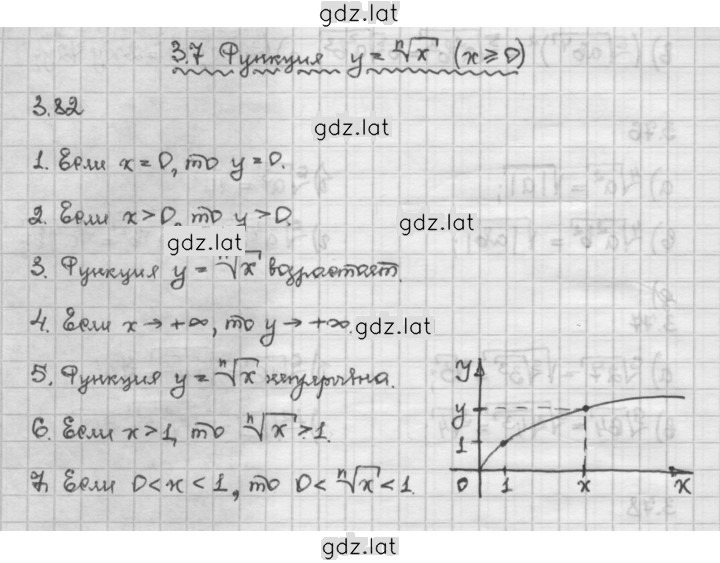 gdz.lat
3.7 Функция y = ⁿ√x (x ≥ 0)
3.82
gdz.lat
1. Если x = 0, то y = 0.
2. Если x > 0, то y > 0.
gdz.lat
gdz.lat
3. Функция y = ⁿ√x возрастает.
4. Если x → +∞, то y → +∞.
gdz.lat
5. Функция y = ⁿ√x непрерывна.
6. Если x > 1, то ⁿ√x > 1.
7. Если 0 < x < 1, то 0 < ⁿ√x < 1.
y
y
1
0 1 x x
gdz.lat